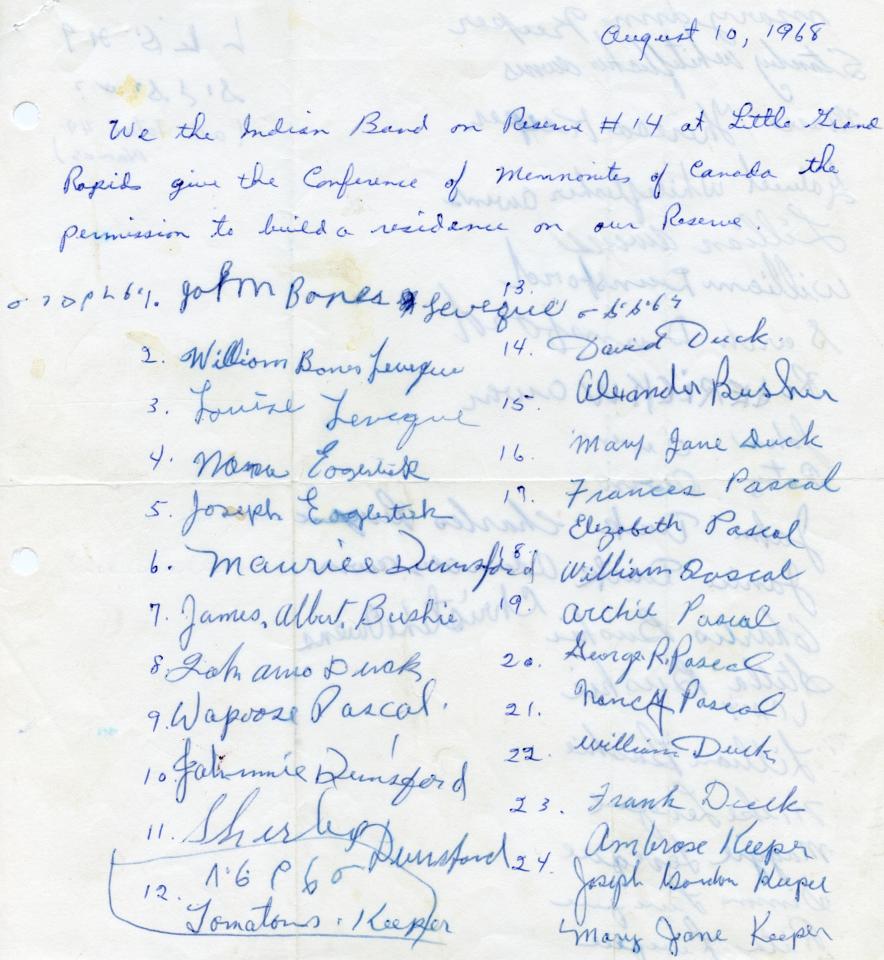 August 10, 1968
We the Indian Band on Reserve #14 at Little Grand
Rapids give the Conference of Mennonites of Canada the
permission to build a residence on our Reserve.
1. John Bones Leveque
2. William Bones Leveque
3. Louise Leveque
4. Eaglestick
5. Joseph Eaglestick
6. Maurice Dunsford
7. James, Albert, Bushie
8. Duck
9. Wapoose Pascal.
10. Johnnie Dunsford
11. Shirley Dunsford
12.
Tomatoms. Keeper
13.
14. David Duck.
15. Alexander Bushie
16. Mary Jane Duck
17. Frances Pascal
Elizabeth Pascal
18. William Pascal
19. Archie Pascal
20. George R. Pascal
21. Nancy Pascal
22. William Duck
23. Frank Duck
24. Ambrose Keeper
Joseph Gordon Keeper
Mary Jane Keeper